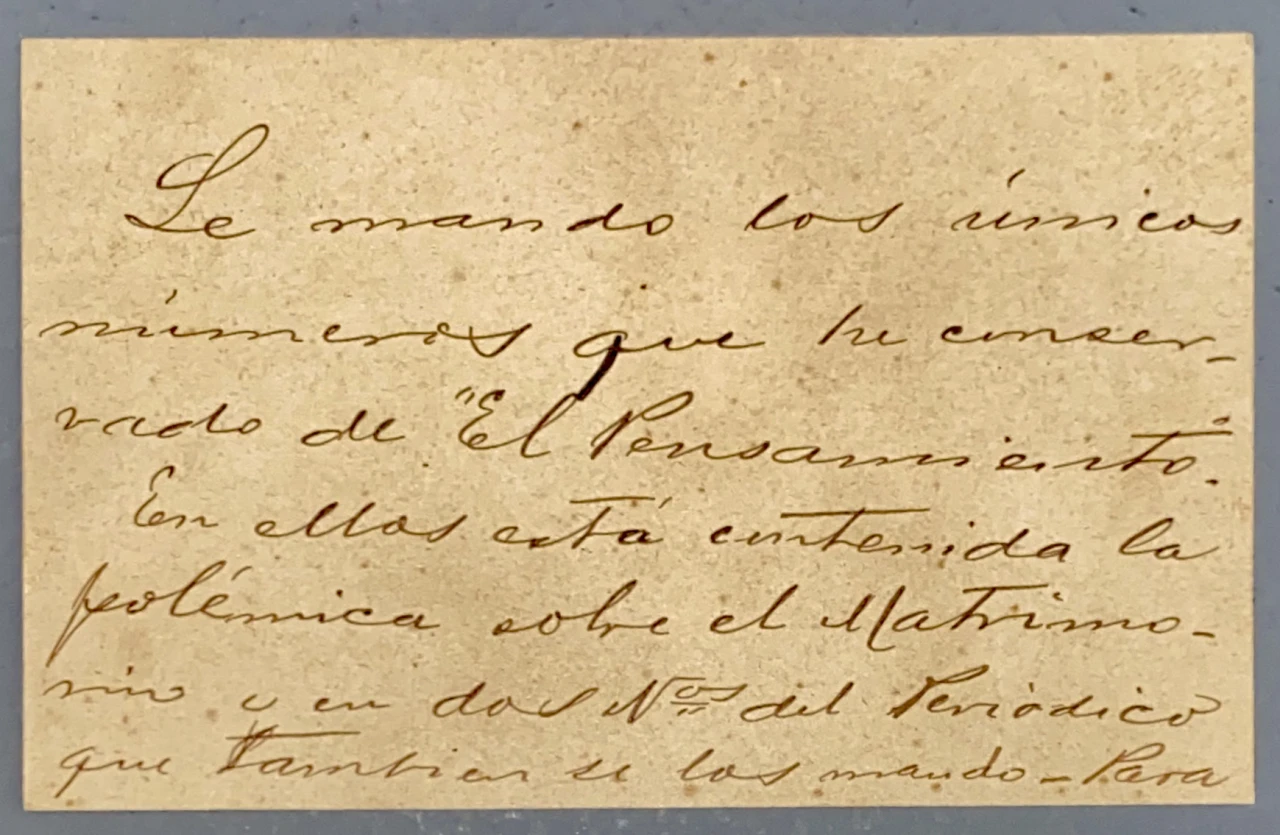 Le mando los únicos
números que he conser-
vado de "El Pensamiento".
En ellos está contenida la
polémica sobre el Matrimo-
nio y en dos Nos del Periódico
que tambien se los mando - Para